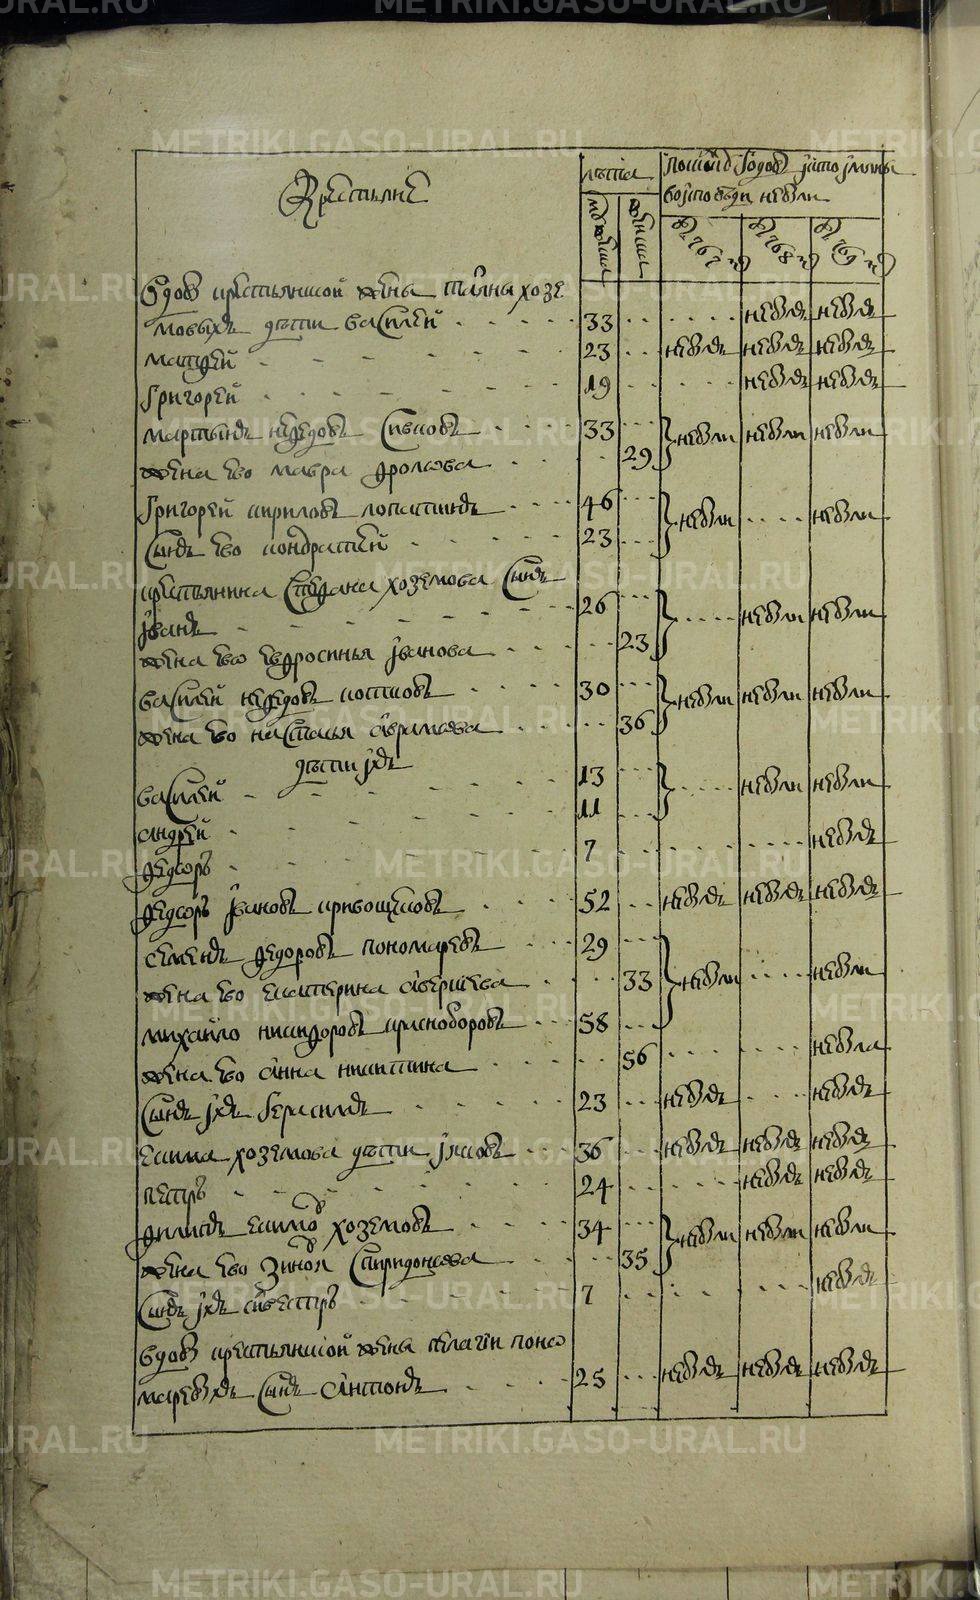 METRIKI.GASO-URAL.RU
Крестьяне
лета
мужеска
женска
которых годов и кто имяны
в 767 м
в 768 м
в 769 м
вдовы крестьянской жены татьяны хозе
мовыхъ дети василей 33 небылъ небылъ
матфей 23 небылъ небылъ небылъ
григорей 19 небылъ небылъ
мартынъ нефедовъ сивковъ 33 небыли небыли небыли
жена ево мавра фролова 29
григорей кириловъ лопаткинъ 46 небыли небыли
сынъ ево кондратей 23
крестьянина стефана хоземова сынъ
иванъ 26 небыли небыли
жена ево евфросинья иванова 23
василей нефедовъ котковъ 30 небыли небыли небыли
жена ево настасья аврамьева 36
дети ихъ
василей 13 небыли небыли
андрей 11
федоръ 7 небылъ
федоръ ивановъ кривощековъ 52 небылъ небылъ небылъ
семенъ федоровъ пономаревъ 29 небыли небыли
жена ево екатерина аверкиева 33
михайло никифоровъ красноборовъ 58
жена ево анна никитина 56 небыла
сынъ ихъ герасимъ 23 небылъ небылъ
екима хоземова дети яковъ 36 небылъ небылъ небылъ
петръ 24 небылъ небылъ
филипъ екимовъ хоземовъ 34 небыли небыли небыли
жена ево зиновя спиридонова 35
сынъ ихъ сивестръ 7 небылъ
вдовы крестьянской жены пелагеи поно
маревыхъ сынъ антонъ 25 небылъ небылъ небылъ